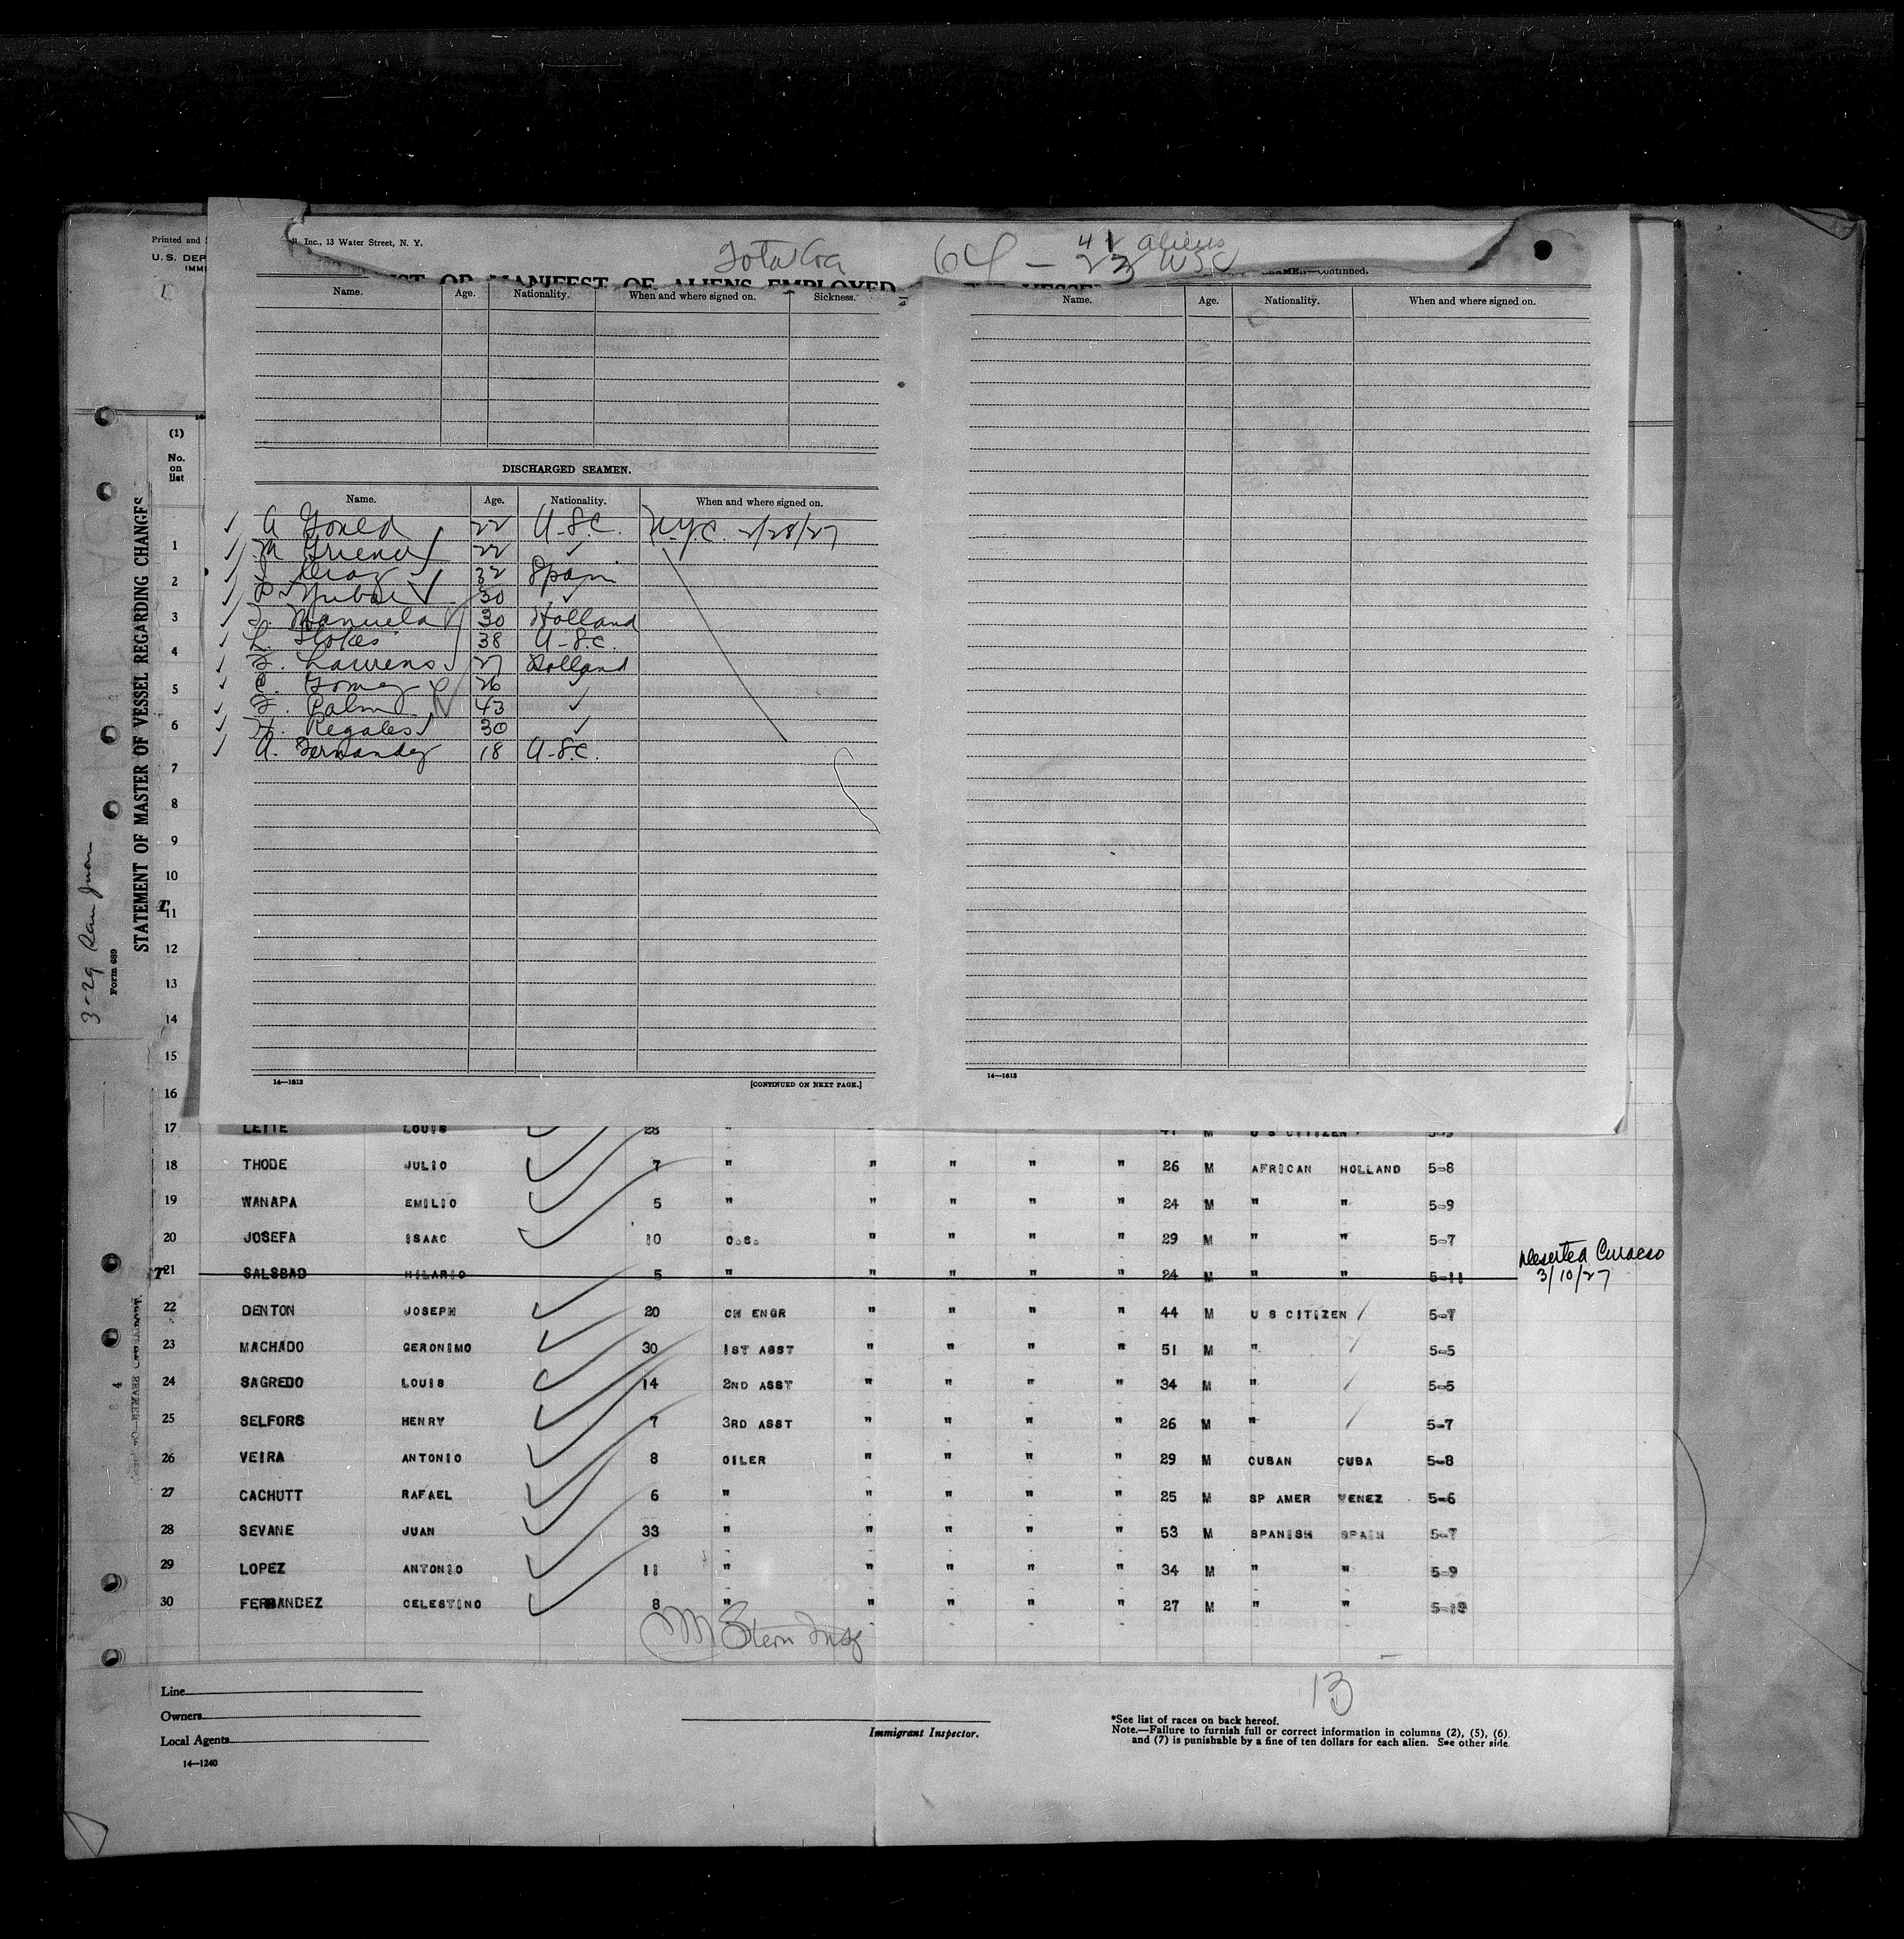 Printed and
U.S. DEP
IMMI
Inc., 13 Water Street, N. Y.
64 — 41 aliens
OR MANIFEST OF ALIENS EMPLOYED
—Continued.
Name. Age. Nationality. When and where signed on. Sickness.
Name. Age. Nationality. When and where signed on.
DISCHARGED SEAMEN.
Name. Age. Nationality. When and where signed on.
✓ A Gould 22 U.S.C. N.Y.C. 2/28/27
✓ M 22 ✓
✓ 32 Spain
✓ 30 ✓
✓ Manuela 30 Holland
✓ L. Stokes 38 U.S.C.
✓ Lawrens 27 Holland
✓ Gomez 26 ✓
✓ Palm 43 ✓
✓ H. Regales 30 ✓
✓ A. Fernandez 18 U.S.C.
14—1613 [CONTINUED ON NEXT PAGE.]
14—1613
STATEMENT OF MASTER OF VESSEL REGARDING CHANGES
Form 689
3-29 San Juan
(1)
No.
on
list
1
2
3
4
5
6
7
8
9
10
11
12
13
14
15
16
17 LEITE LOUIS 28 " 41 M U S CITIZEN 5-9
18 THODE JULIO 7 " " " " " 26 M AFRICAN HOLLAND 5-8
19 WANAPA EMILIO 5 " " " " " 24 M " " 5-9
20 JOSEFA ISAAC 10 " " " " 29 M " " 5-7
21 SALSBAD HILARIO 5 " " " " " 24 M " " 5-11 Deserted Curacao
3/10/27
22 DENTON JOSEPH 20 CH ENGR " " " " 44 M U S CITIZEN 5-7
23 MACHADO GERONIMO 30 1ST ASST " " " " 51 M " 5-5
24 SAGREDO LOUIS 14 2ND ASST " " " " 34 M " 5-5
25 SELFORS HENRY 7 3RD ASST " " " " 26 M " 5-7
26 VEIRA ANTONIO 8 OILER " " " " 29 M CUBAN CUBA 5-8
27 CACHUTT RAFAEL 6 " " " " " 25 M SP AMER VENEZ 5-6
28 SEVANE JUAN 33 " " " " " 53 M SPANISH SPAIN 5-7
29 LOPEZ ANTONIO 11 " " " " " 34 M " " 5-9
30 FERNANDEZ CELESTINO 8 " " " " " 27 M " "
M Stern Insp
13
Line
Owners
Local Agents
14—1240
Immigrant Inspector.
*See list of races on back hereof.
Note.—Failure to furnish full or correct information in columns (2), (5), (6),
and (7) is punishable by a fine of ten dollars for each alien. See other side